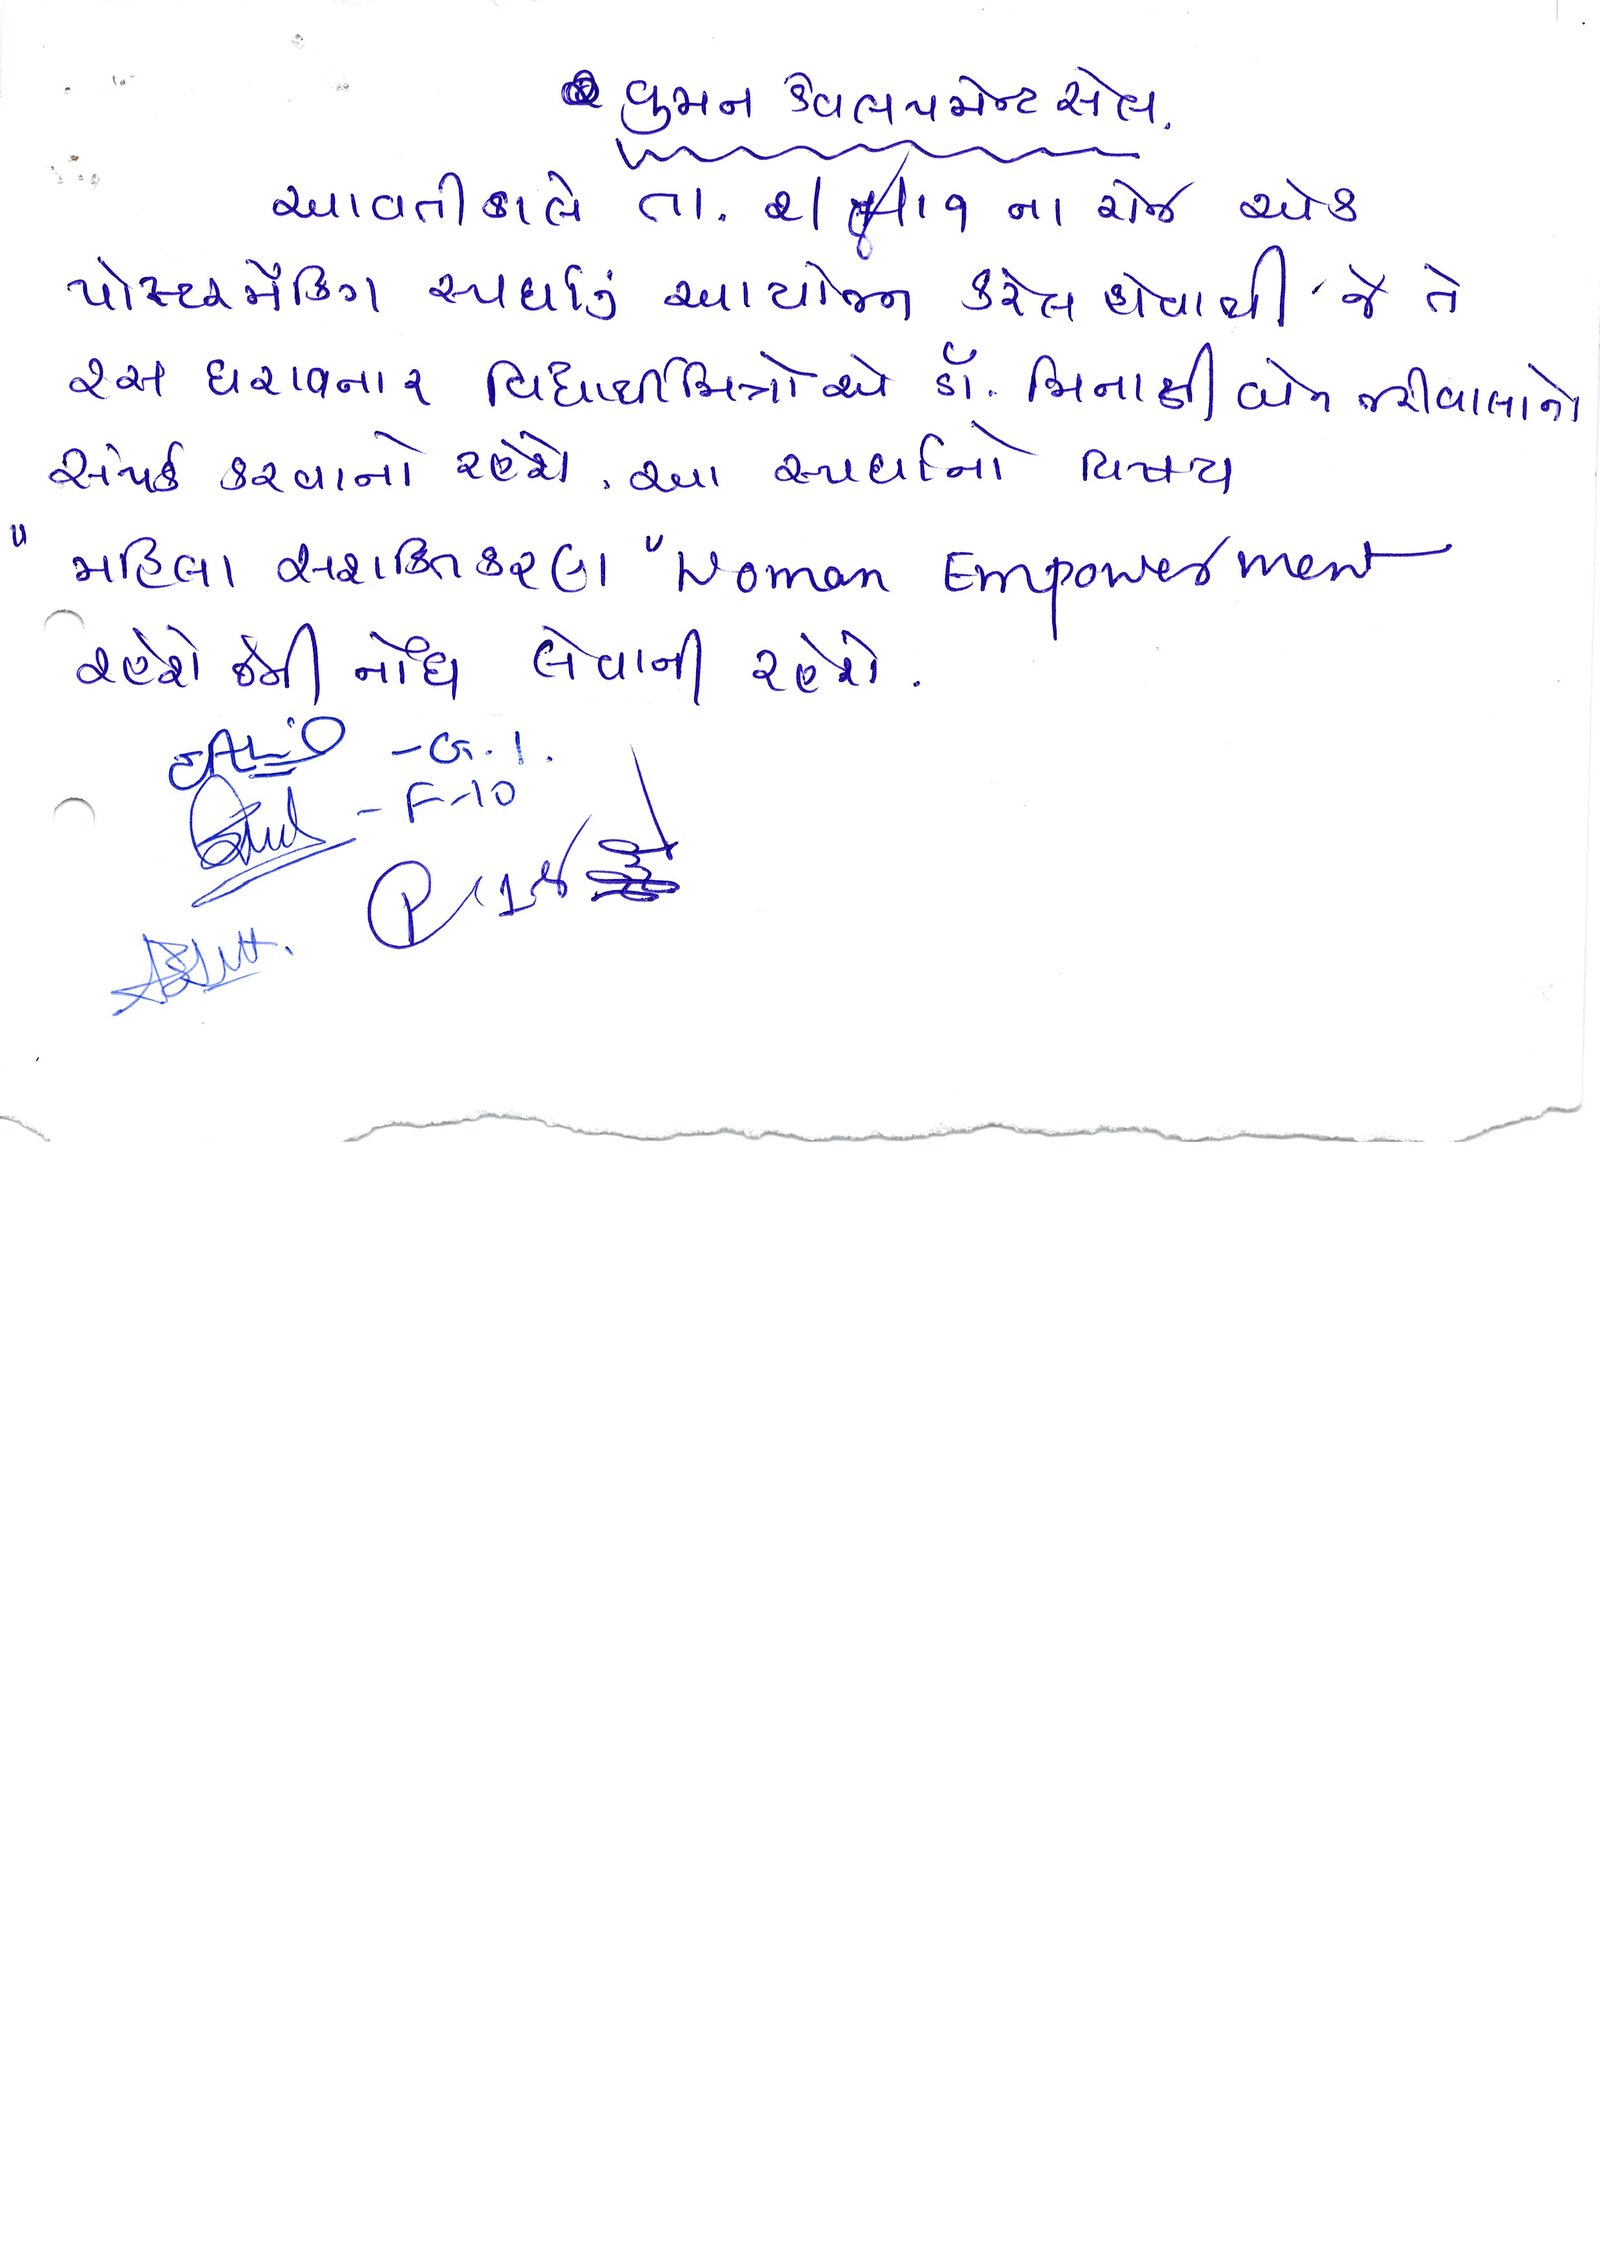 વુમન ડેવલપમેન્ટ સેલ.
આવતીકાલે તા. ના રોજ એક
પોસ્ટરમૅકિંગ સ્પર્ધાનું આયોજન કરેલ હોવાથી જે તે
રસ ધરાવનાર વિદ્યાર્થીમિત્રોએ ડૉ. મિનાક્ષી જરીવાલાનો
સંપર્ક કરવાનો રહેશે. આ સ્પર્ધાનો વિષય
" મહિલા સશક્તિકરણ " Woman Empowerment
રહેશે જેની નોંધ લેવાની રહેશે.
- G.1.
- F-10